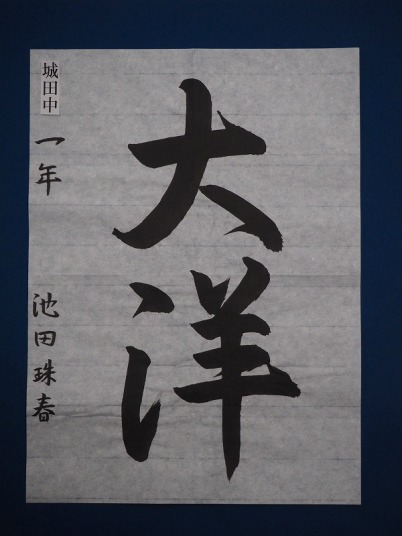 大洋
城田中
一年
池田珠春